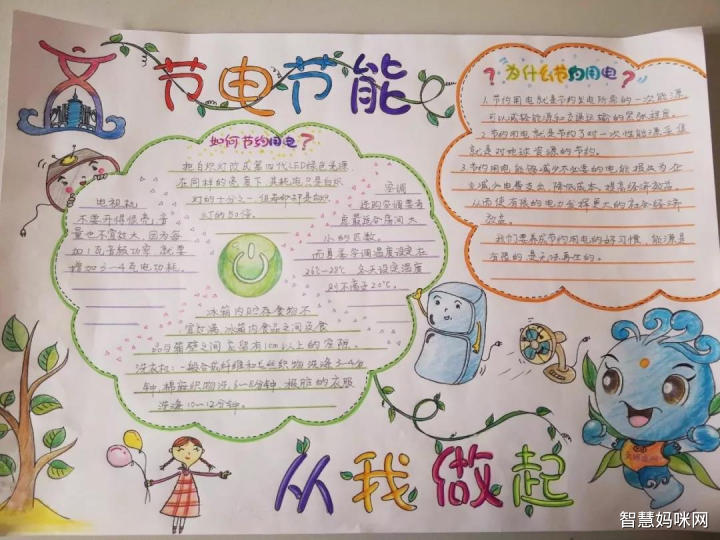 节电节能
如何节约用电?
把白炽灯改成第四代LED绿色光源
在同样的亮度下,其耗电只是白炽
灯的十分之一,但寿命却是白炽
灯的50倍。
电视机:
不要开得很亮,音
量也不宜放大,因为每
加1瓦音频功率 就要
增加3-4瓦电功耗.
空调
选购空调要考
虑最适合房间大
小的匹数。
而且要空调温度设定在
26℃-28℃ 冬天设定温度
则不高于20℃.
冰箱内贮存食物不
宜过满 冰箱内食品之间及食
品与箱壁之间 应留有1cm以上的空隙.
洗衣机:一般合成纤维和毛丝织物 洗涤3-4分
钟,棉麻织物洗6-8分钟 极脏的衣服
洗涤10-12分钟.
?为什么节约用电?
1.节约用电就是节约发电所需的一次能源
可以减轻能源和交通运输的紧张程度.
2.节约用电就是节约了对一次性能源采集
就是对地球资源的节约.
3.节约用电能够减少不必要的电能损失为
减少电费支出,降低成本,提高经济效益
从而使有限的电力发挥更大的社会经济
效益。
我们要养成节约用电的好习惯,能源是
有限的 是无法再生的.
从我做起
智慧妈咪网